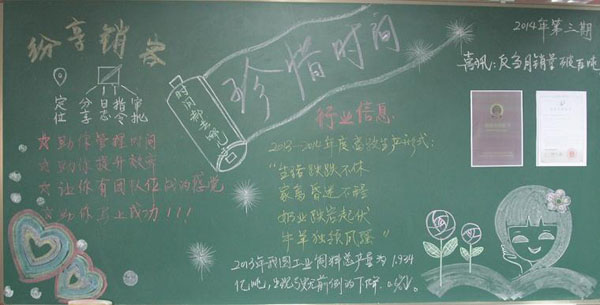 纷享销客
定位
分享
日志
指令
审批
★助你管理时间
★助你提升效率
★让你有团队作战的感觉
★助你马上成功!!!
时间都去哪了
珍惜时间
2014年第三期
喜讯：反刍月销量破百吨
行业信息
2013-2014年度畜牧生产形式：
"生猪跌跌不休
家禽昏迷不醒
奶业跌宕起伏
牛羊独领风骚"
2013年我国工业饲料总产量为1.934
亿吨，出现史无前例的下降